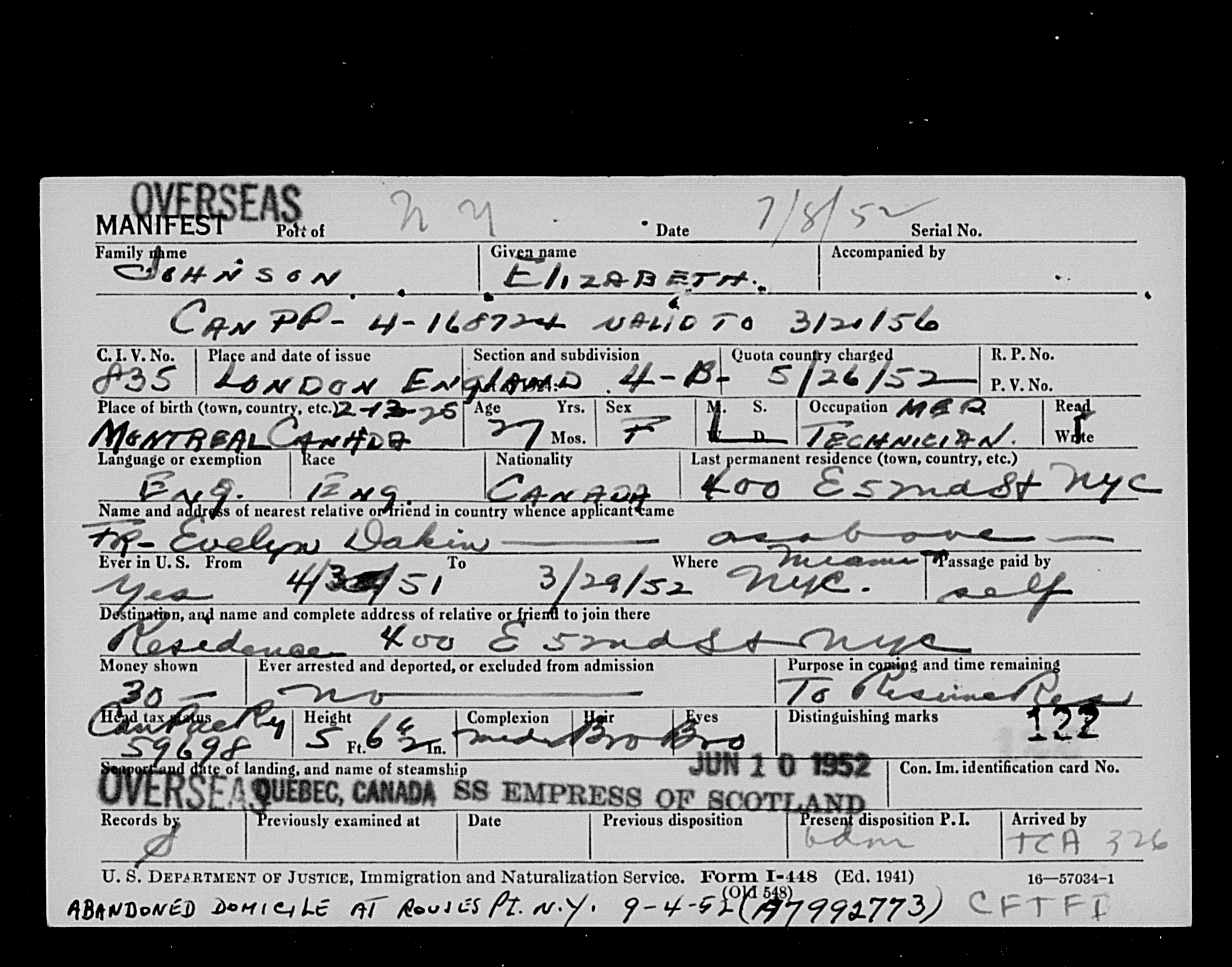 OVERSEAS
MANIFEST Port of N Y Date 7/8/52 Serial No.
Family name Given name Accompanied by
JOHNSON ELIZABETH.
CAN PP- 4-168724 VALID TO 3/21/56
C. I. V. No. Place and date of issue Section and subdivision Quota country charged R. P. No.
835 LONDON ENGLAND 4-B- 5/26/52 P. V. No.
Place of birth (town, country, etc.) 2-13-25 Age Yrs. Sex M. S. Occupation MED Read
MONTREAL CANADA 27 Mos. F W. D. TECHNICIAN. Write
Language or exemption Race Nationality Last permanent residence (town, country, etc.)
ENG. ENG. CANADA 400 E 52nd St NYC
Name and address of nearest relative or friend in country whence applicant came
FR- Evelyn Dakin as above
Ever in U. S. From To Where Miami Passage paid by
Yes 4/ /51 3/29/52 NYC. self
Destination, and name and complete address of relative or friend to join there
Residence 400 E 52nd St NYC
Money shown Ever arrested and deported, or excluded from admission Purpose in coming and time remaining
30 — no To Resume Res
Head tax status Height Complexion Hair Eyes Distinguishing marks 122
Can Pac Ry 5 Ft. 6 1/2 In. med Bro Bro
59698
Seaport and date of landing, and name of steamship JUN 10 1952 Con. Im. identification card No.
OVERSEAS QUEBEC, CANADA SS EMPRESS OF SCOTLAND
Records by Previously examined at Date Previous disposition Present disposition P. I. Arrived by
adm TCA 326
U. S. DEPARTMENT OF JUSTICE, Immigration and Naturalization Service. Form I-448 (Ed. 1941) 16—57034-1
(Old 548)
ABANDONED DOMICILE AT ROUSES PT. N.Y. 9-4-52 (A7992773) CFTFI